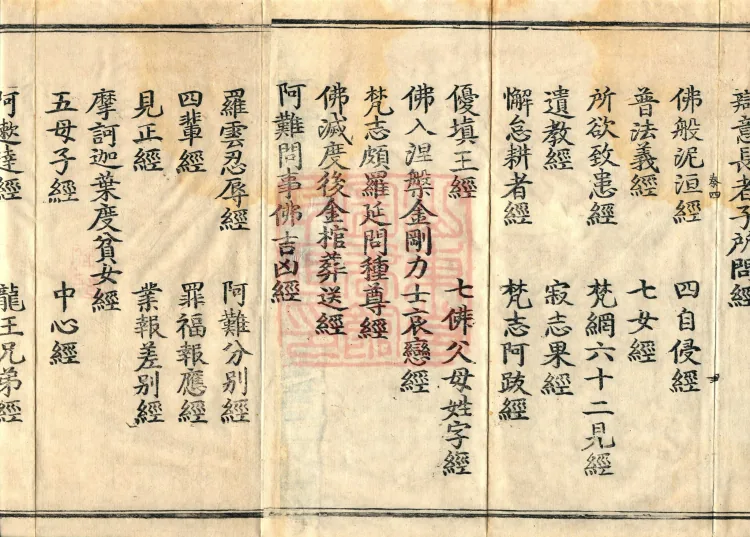 意長者子所問經
卷四
佛般泥洹經　四自侵經
普法義經　七女經
所欲致患經　梵網六十二見經
遺教經　寂志果經
懈怠耕者經　梵志阿跋經
優填王經　七佛父母姓字經
佛入涅槃金剛力士哀戀經
梵志頗羅延問種尊經
佛滅度後金棺葬送經
阿難問事佛吉凶經
羅雲忍辱經　阿難分別經
四輩經　罪福報應經
見正經　業報差別經
摩訶迦葉度貧女經
五母子經　中心經
阿遬達經　龍王兄弟經